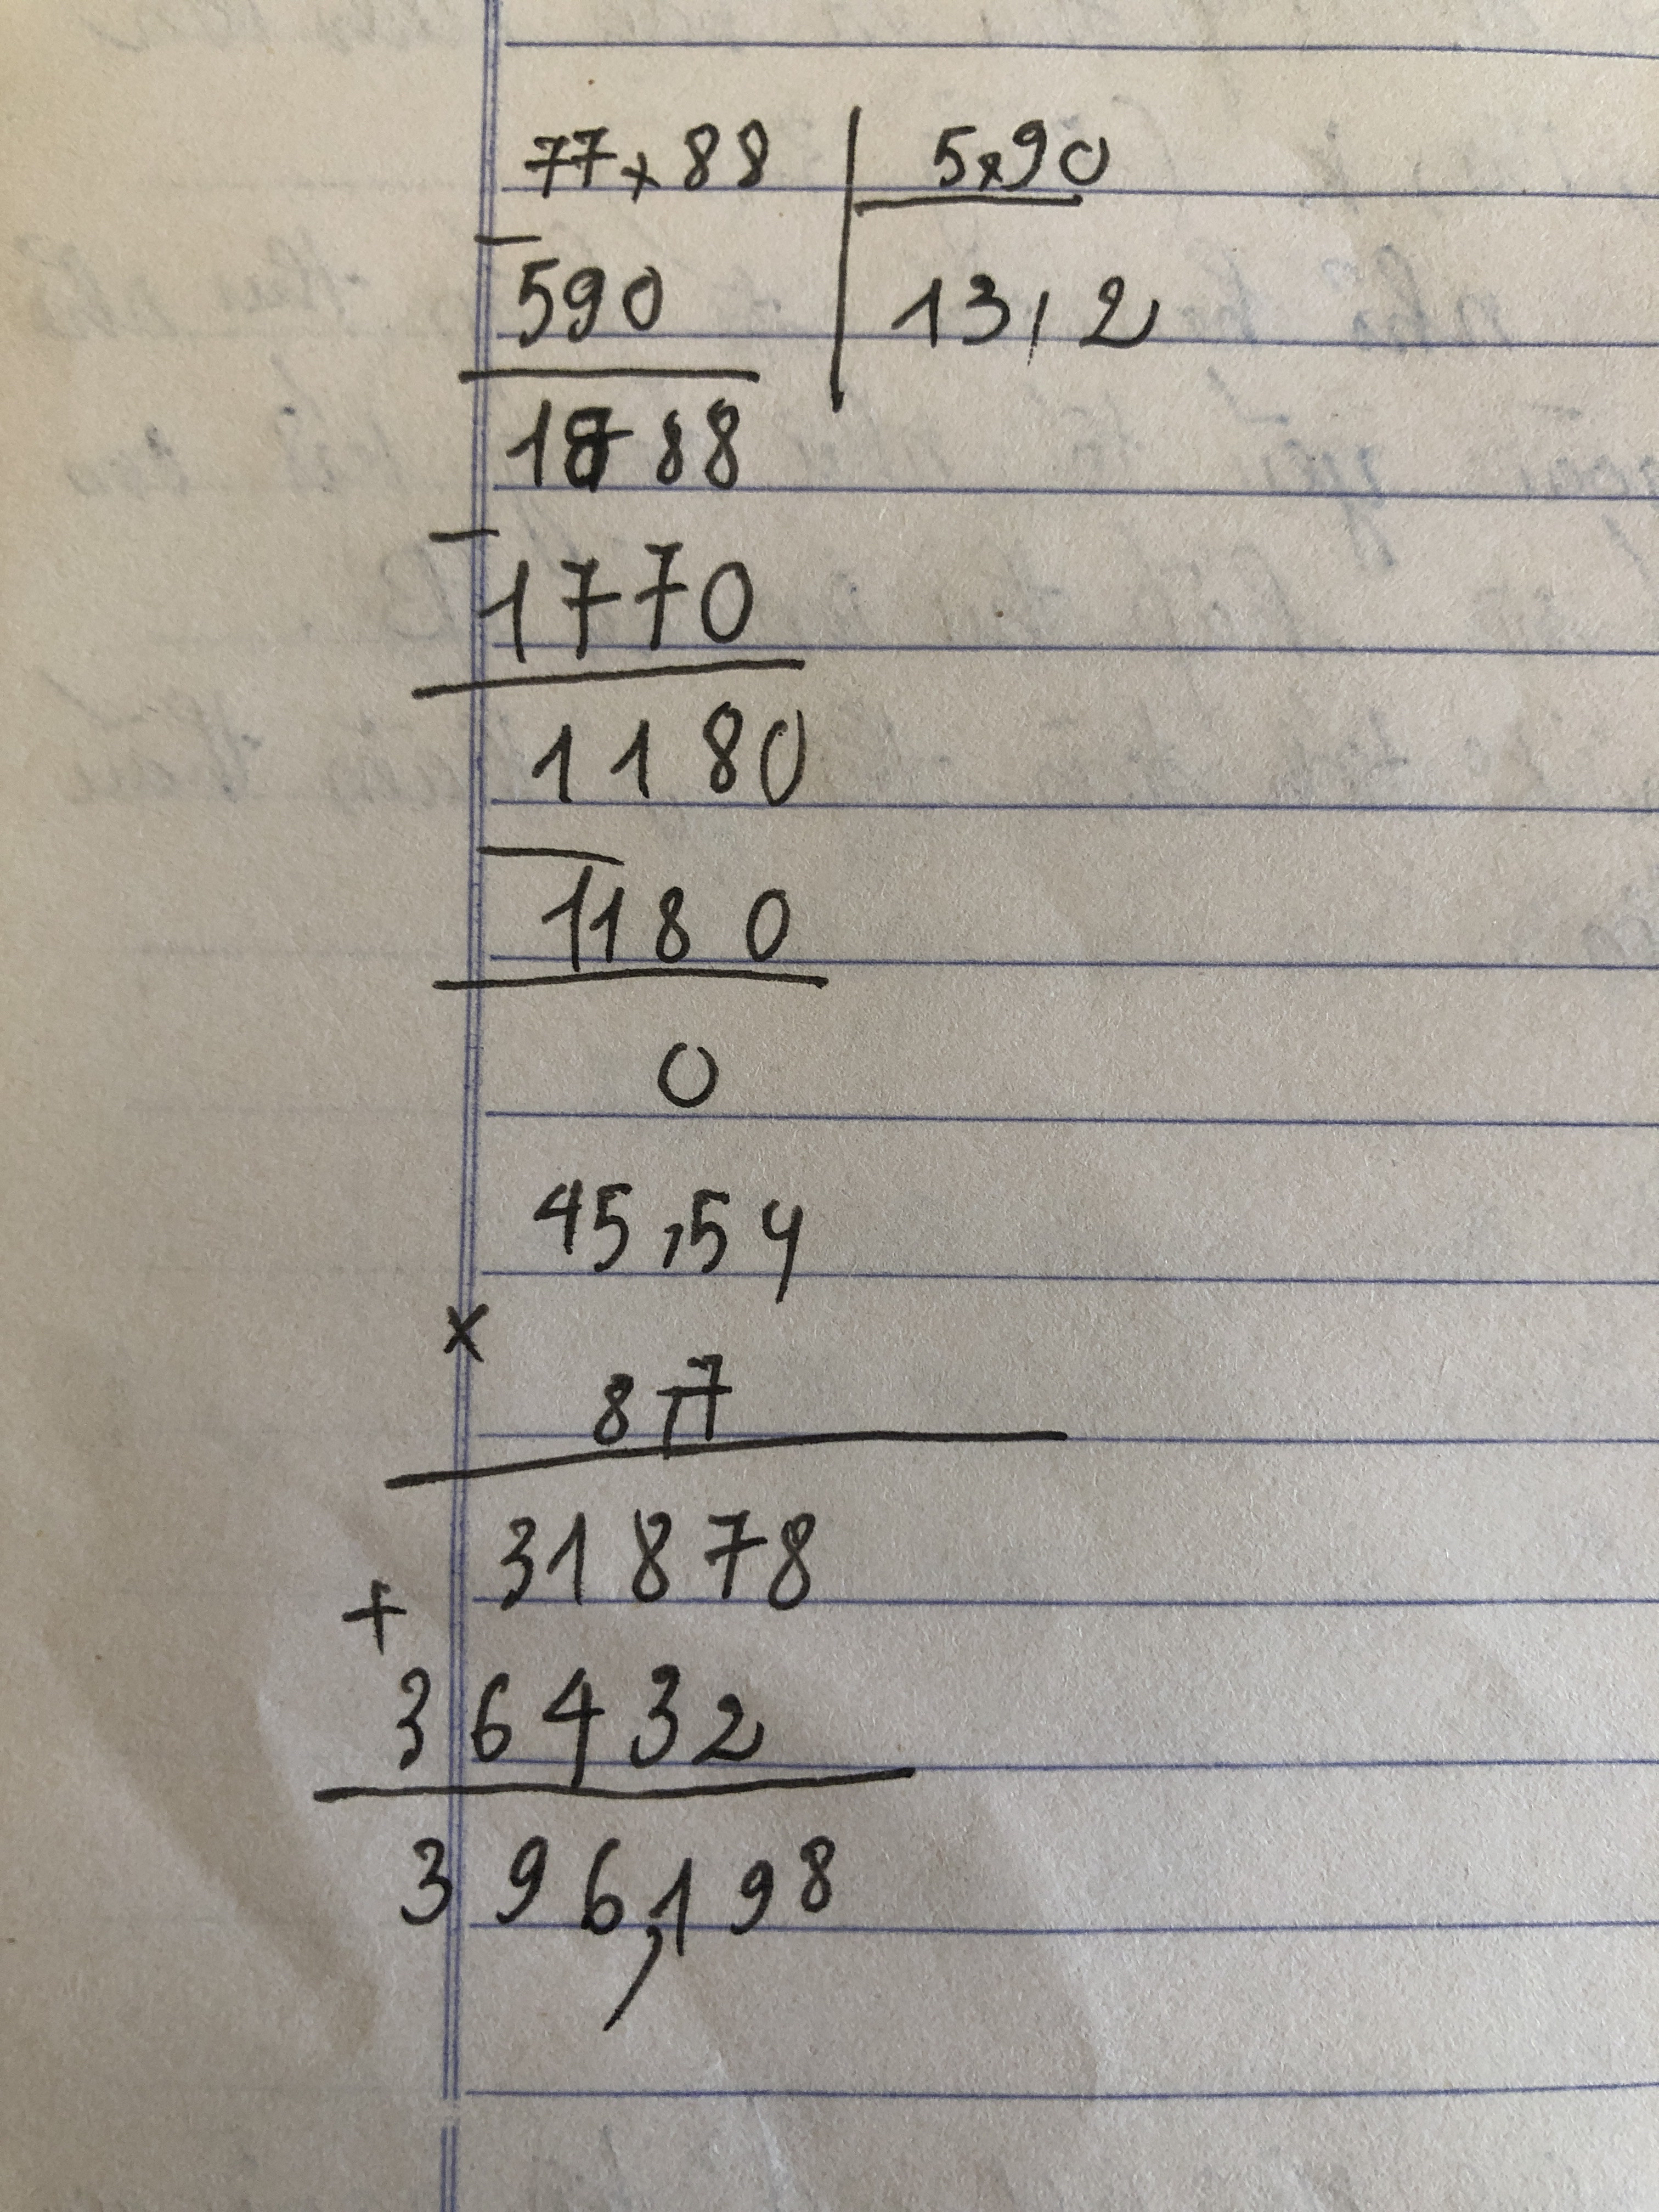 77,88 5,90
590 13,2
1888
1770
1180
1180
0
45,54
x
8,7
31878
+
36432
396,198